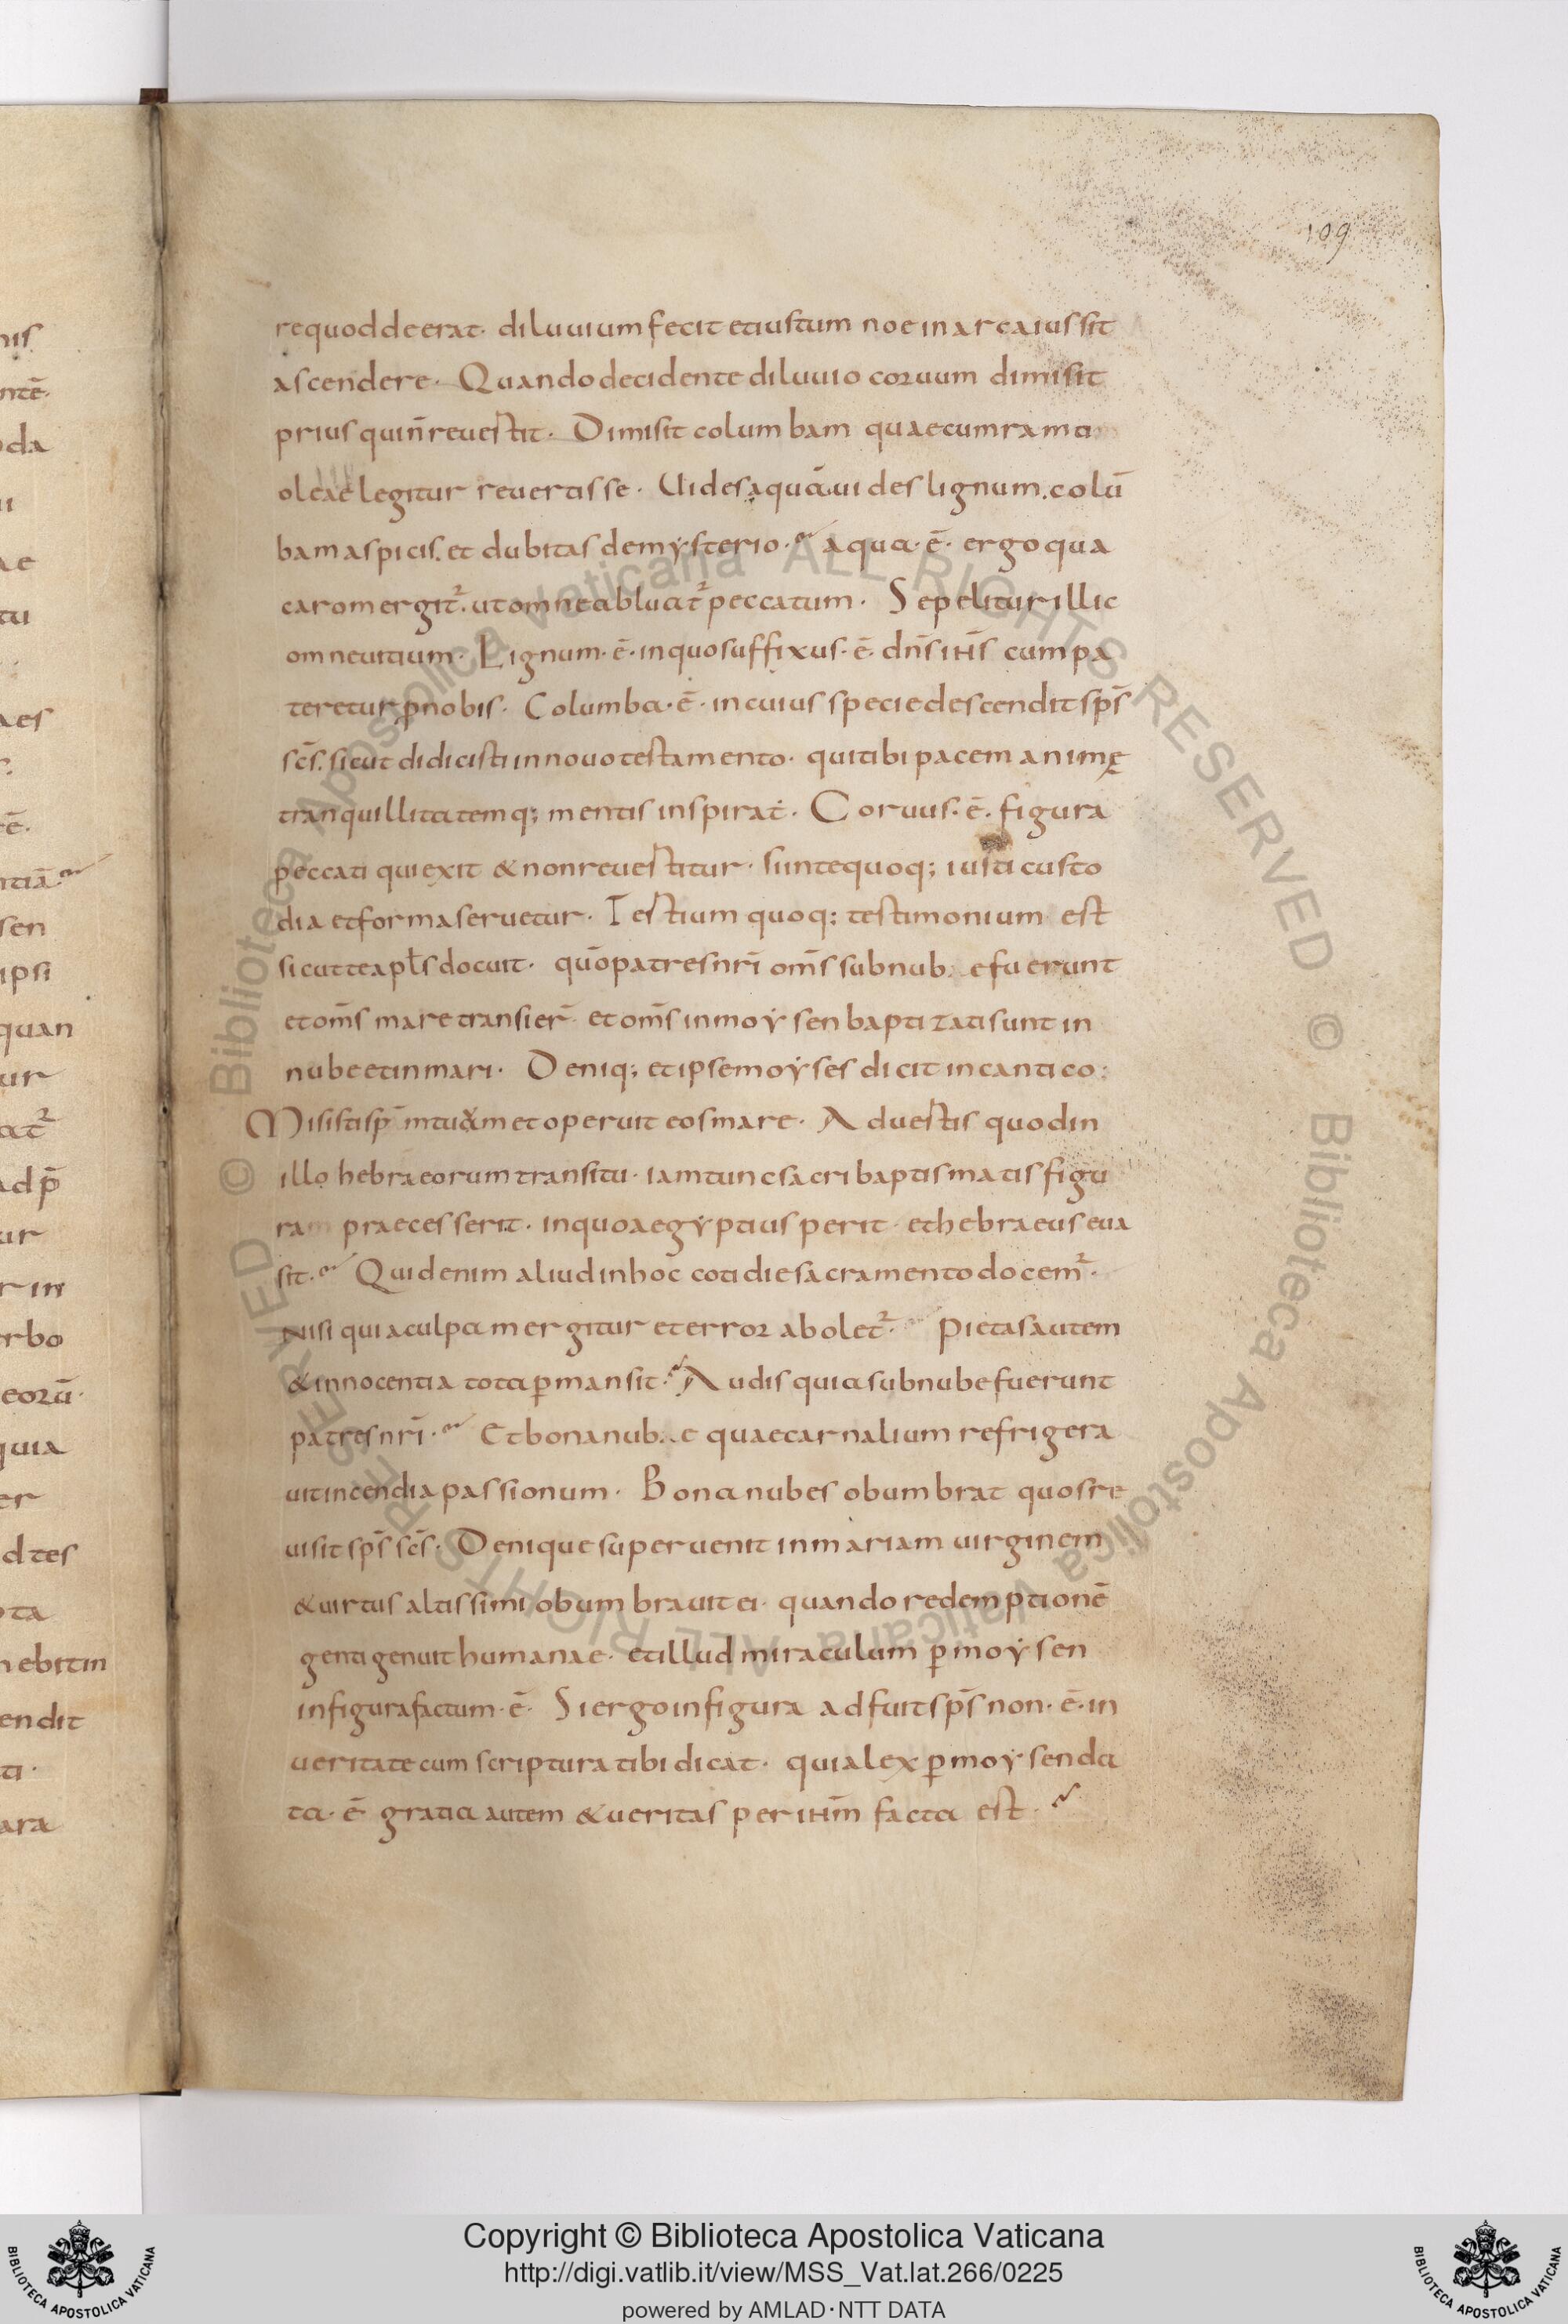 109
re quod deerat· diluuium fecit et iustum noe in arca iussit
ascendere· Quando decidente diluuio coruum dimisit
prius qui n̄ reuestit· Dimisit columbam quae cum ramo
oleae legitur reuertisse· Uides aquā· uides lignum. colū
bam aspicis. et dubitas de mẏsterio· aqua· ē· ergo qua
caro mergit᷑. ut omne abluat᷑ peccatum· Sepelitur illic
omne uitium· Lignum· ē· in quo suffixus· ē· dn̄s ih̄s cum pa
teretur ꝓ nobis· Columba· ē· in cuius specie descendit sp̄s
sc̄s. sicut didicisti in nouo testamento· qui tibi pacem animę
tranquillitatemq; mentis inspirat· Coruus· ē· figura
peccati qui exit & non reuestitur· si in te quoq; iusti custo
dia et forma seruetur· Testium quoq; testimonium est
sicut te apl̄s docuit· quō patres nr̄i om̄s sub nub e fuerunt
et om̄s mare transier̄ et om̄s in moẏsen baptizati sunt in
nube et in mari· Deniq; et ipse moẏses dicit in cantico:
Misisti sp̄m tuum et operuit eos mare· Aduestis quod in
illo hebraeorum transitu· iam tunc sacri baptismatis figu
ram praecesserit· in quo aegẏptius perit· et hebraeus eua
sit· Quid enim aliud in hoc cotidie sacramento docem᷑·
nisi quia culpa mergitur et error abolet᷑· Pietas autem
& innocentia tota ꝑmansit· Audis quia sub nube fuerunt
patres nr̄i· Et bona nub e quae carnalium refrigera
uit incendia passionum· Bona nubes obumbrat quos re
uisit sp̄s sc̄s· Denique superuenit in mariam uirginem
& uirtus altissimi obumbrauit ei· quando redemptionē
genti genuit humanae· et illud miraculum ꝑ moẏsen
in figura factum· ē· Si ergo in figura adfuit sp̄s non· ē· in
ueritate cum scriptura tibi dicat· quia lex ꝑ moẏsen da
ta· ē· gratia autem & ueritas per ih̄m facta est·
Copyright © Biblioteca Apostolica Vaticana
http://digi.vatlib.it/view/MSS_Vat.lat.266/0225
powered by AMLAD·NTT DATA